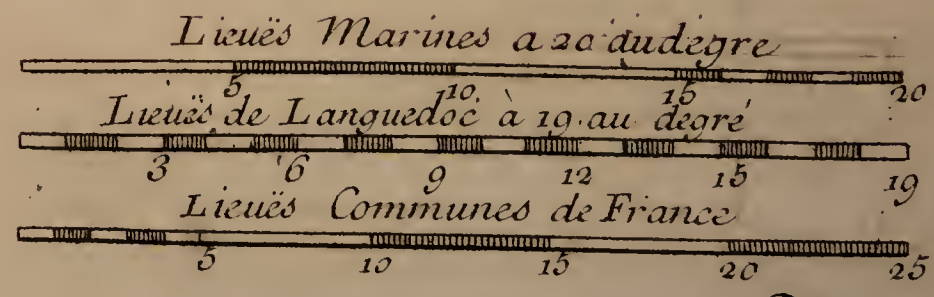 Lieuës Marines a 20 du degre
5 10 15 20
Lieuës de Languedoc à 19. au degré
3 6 9 12 15 19
Lieuës Communes de France
5 10 15 20 25